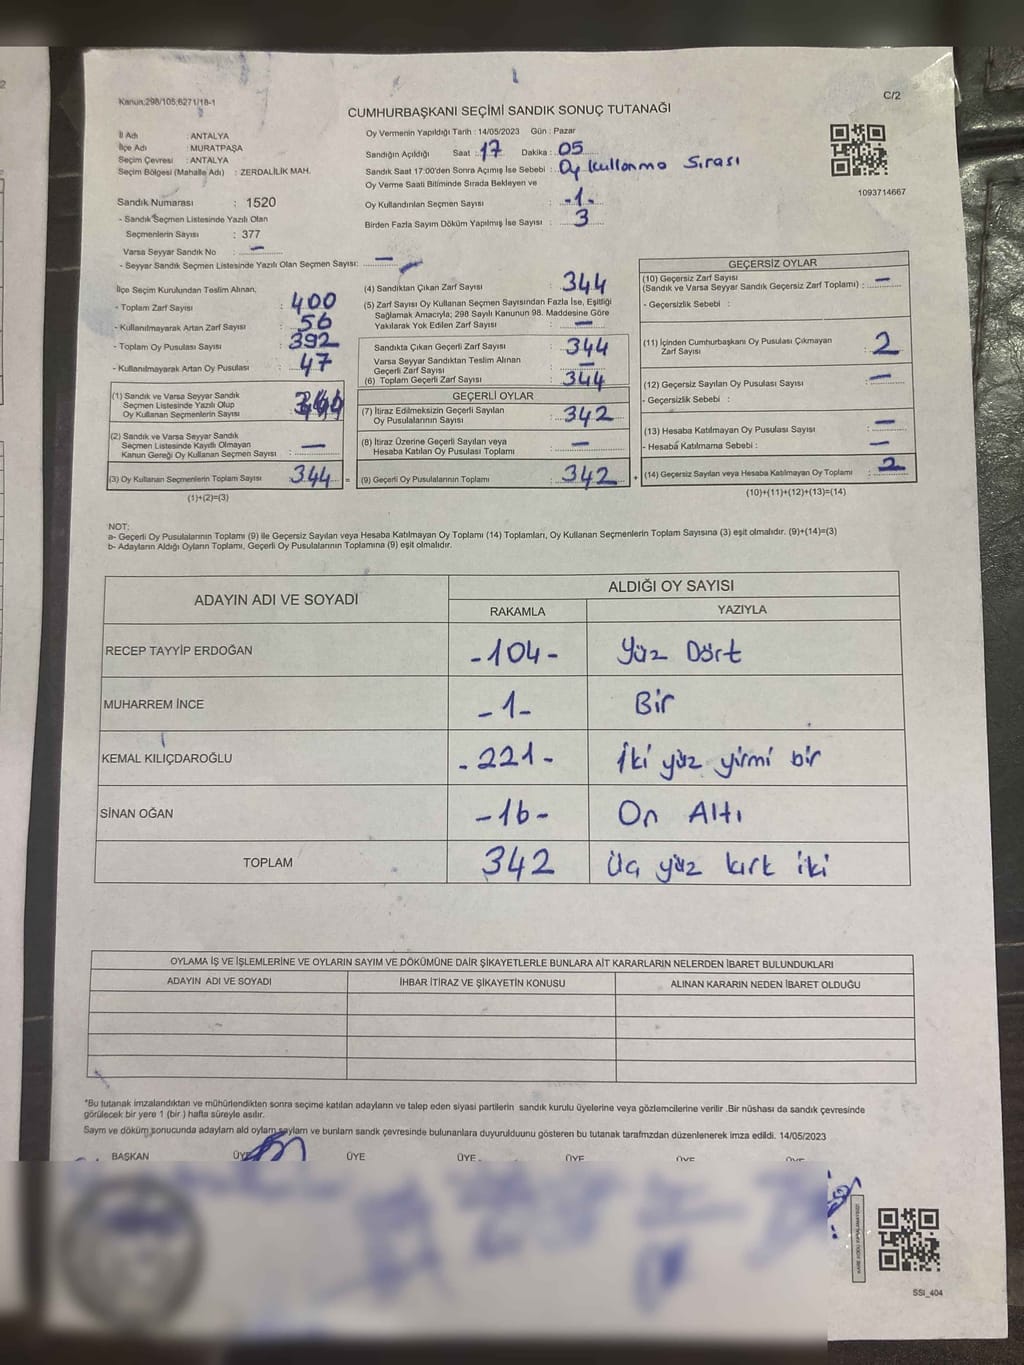 Kanun:298/105;6271/18-1
C/2
CUMHURBAŞKANI SEÇİMİ SANDIK SONUÇ TUTANAĞI
İl Adı : ANTALYA
İlçe Adı : MURATPAŞA
Seçim Çevresi : ANTALYA
Seçim Bölgesi (Mahalle Adı) : ZERDALİLİK MAH.
Sandık Numarası : 1520
- Sandık Seçmen Listesinde Yazılı Olan
Seçmenlerin Sayısı : 377
Varsa Seyyar Sandık No : —
- Seyyar Sandık Seçmen Listesinde Yazılı Olan Seçmen Sayısı: —
Oy Vermenin Yapıldığı Tarih : 14/05/2023 Gün : Pazar
Sandığın Açıldığı Saat : 17 Dakika : 05
Sandık Saat 17:00'den Sonra Açımış İse Sebebi : Oy kullanma Sırası
Oy Verme Saati Bitiminde Sırada Bekleyen ve
Oy Kullandırılan Seçmen Sayısı : -1-
Birden Fazla Sayım Döküm Yapılmış İse Sayısı : 3
1093714667
İlçe Seçim Kurulundan Teslim Alınan,
- Toplam Zarf Sayısı : 400
- Kullanılmayarak Artan Zarf Sayısı : 56
- Toplam Oy Pusulası Sayısı : 392
- Kullanılmayarak Artan Oy Pusulası : 47
(1) Sandık ve Varsa Seyyar Sandık
Seçmen Listesinde Yazılı Olup
Oy Kullanan Seçmenlerin Sayısı : 344
(2) Sandık ve Varsa Seyyar Sandık
Seçmen Listesinde Kayıtlı Olmayan
Kanun Gereği Oy Kullanan Seçmen Sayısı : —
(3) Oy Kullanan Seçmenlerin Toplam Sayısı : 344 =
(1)+(2)=(3)
(4) Sandıktan Çıkan Zarf Sayısı : 344
(5) Zarf Sayısı Oy Kullanan Seçmen Sayısından Fazla İse, Eşitliği
Sağlamak Amacıyla; 298 Sayılı Kanunun 98. Maddesine Göre
Yakılarak Yok Edilen Zarf Sayısı : —
Sandıkta Çıkan Geçerli Zarf Sayısı : 344
Varsa Seyyar Sandıktan Teslim Alınan
Geçerli Zarf Sayısı : —
(6) Toplam Geçerli Zarf Sayısı : 344
GEÇERLİ OYLAR
(7) İtiraz Edilmeksizin Geçerli Sayılan
Oy Pusulalarının Sayısı : 342
(8) İtiraz Üzerine Geçerli Sayılan veya
Hesaba Katılan Oy Pusulası Toplamı : —
(9) Geçerli Oy Pusulalarının Toplamı : 342 +
GEÇERSİZ OYLAR
(10) Geçersiz Zarf Sayısı
(Sandık ve Varsa Seyyar Sandık Geçersiz Zarf Toplamı) : —
- Geçersizlik Sebebi :
(11) İçinden Cumhurbaşkanı Oy Pusulası Çıkmayan
Zarf Sayısı : 2
(12) Geçersiz Sayılan Oy Pusulası Sayısı : —
- Geçersizlik Sebebi :
(13) Hesaba Katılmayan Oy Pusulası Sayısı : —
- Hesaba Katılmama Sebebi : —
(14) Geçersiz Sayılan veya Hesaba Katılmayan Oy Toplamı : 2
(10)+(11)+(12)+(13)=(14)
NOT:
a- Geçerli Oy Pusulalarının Toplamı (9) ile Geçersiz Sayılan veya Hesaba Katılmayan Oy Toplamı (14) Toplamları, Oy Kullanan Seçmenlerin Toplam Sayısına (3) eşit olmalıdır. (9)+(14)=(3)
b- Adayların Aldığı Oyların Toplamı, Geçerli Oy Pusulalarının Toplamına (9) eşit olmalıdır.
ADAYIN ADI VE SOYADI ALDIĞI OY SAYISI
RAKAMLA YAZIYLA
RECEP TAYYİP ERDOĞAN -104- Yüz Dört
MUHARREM İNCE -1- Bir
KEMAL KILIÇDAROĞLU -221- İki yüz yirmi bir
SİNAN OĞAN -16- On Altı
TOPLAM 342 Üç yüz kırk iki
OYLAMA İŞ VE İŞLEMLERİNE VE OYLARIN SAYIM VE DÖKÜMÜNE DAİR ŞİKAYETLERLE BUNLARA AİT KARARLARIN NELERDEN İBARET BULUNDUKLARI
ADAYIN ADI VE SOYADI İHBAR İTİRAZ VE ŞİKAYETİN KONUSU ALINAN KARARIN NEDEN İBARET OLDUĞU
*Bu tutanak imzalandıktan ve mühürlendikten sonra seçime katılan adayların ve talep eden siyasi partilerin sandık kurulu üyelerine veya gözlemcilerine verilir .Bir nüshası da sandık çevresinde
görülecek bir yere 1 (bir ) hafta süreyle asılır.
Sayım ve döküm sonucunda adayların ald oyların sayıları ve bunların sandk çevresinde bulunanlara duyurulduunu gösteren bu tutanak tarafmzdan düzenlenerek imza edildi. 14/05/2023
BAŞKAN ÜYE ÜYE ÜYE ÜYE ÜYE ÜYE
SSI_404